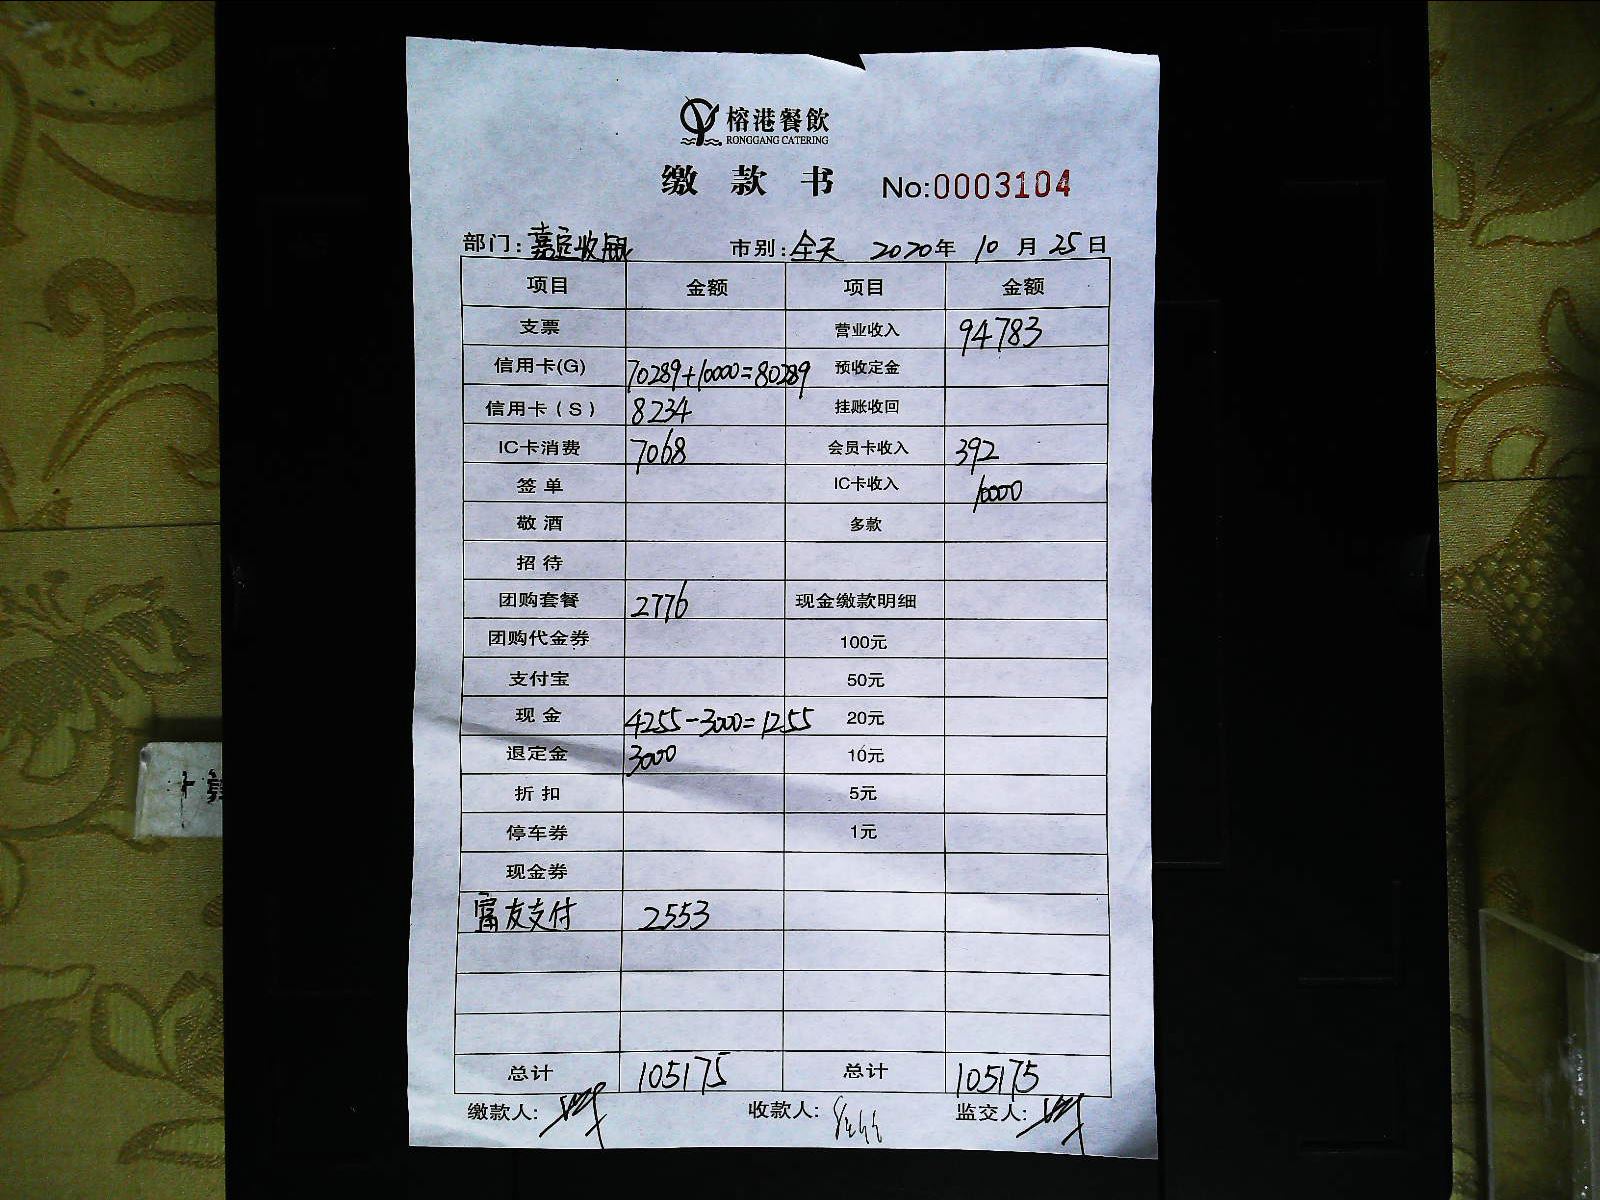 榕港餐飲
RONGGANG CATERING
缴款书 No:0003104
部门:嘉定收银 市别:全天 2020年10月25日
项目 金额 项目 金额
支票 营业收入 94783
信用卡(G) 70289+10000=80289 预收定金
信用卡(S) 8234 挂账收回
IC卡消费 7068 会员卡收入 392
签单 IC卡收入 10000
敬酒 多款
招待
团购套餐 2776 现金缴款明细
团购代金券 100元
支付宝 50元
现金 4255-3000=1255 20元
退定金 3000 10元
折扣 5元
停车券 1元
现金券
富友支付 2553
总计 105175 总计 105175
缴款人: 收款人: 监交人: